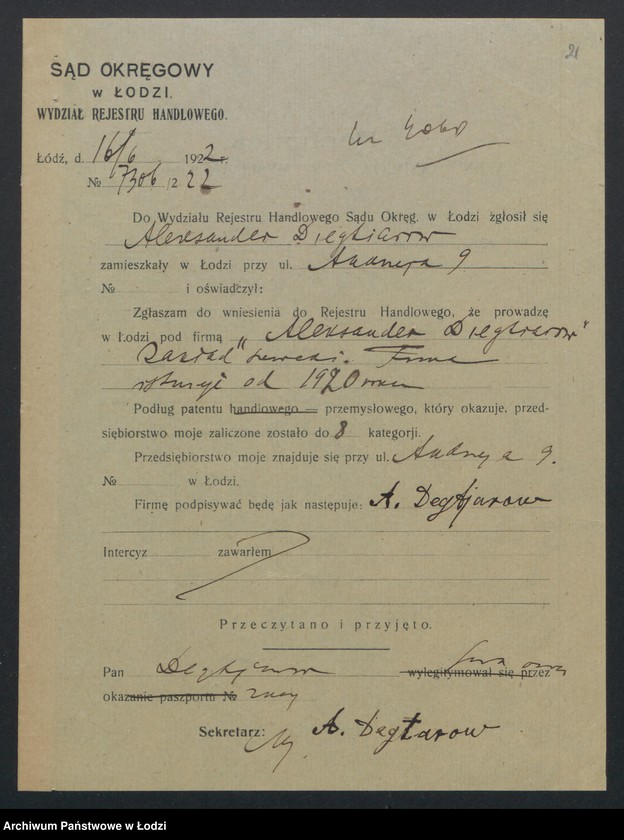 21
SĄD OKRĘGOWY
W ŁODZI.
WYDZIAŁ REJESTRU HANDLOWEGO.
Łódź, d. 16/6 1922 r.
№ 7306/2 22
Do Wydziału Rejestru Handlowego Sądu Okręg. w Łodzi zgłosił się
Aleksander Diegtiarow
zamieszkały w Łodzi przy ul. Andrzeja 9
№ i oświadczył:
Zgłaszam do wniesienia do Rejestru Handlowego, że prowadzę
w Łodzi pod firmą „Aleksander Diegtiarow”
Zakład szewcki. Firma
istnieje od 1920 roku
Podług patentu handlowego = przemysłowego, który okazuję, przed-
siębiorstwo moje zaliczone zostało do 8 kategorji.
Przedsiębiorstwo moje znajduje się przy ul. Andrzeja 9.
№ w Łodzi.
Firmę podpisywać będę jak następuje: A. Degtjarow
Intercyz zawarłem
Przeczytano i przyjęto.
Pan Degtjarow wylegitymował się przez
okazanie paszportu № znany
Sekretarz: A. Degtarow
Archiwum Państwowe w Łodzi